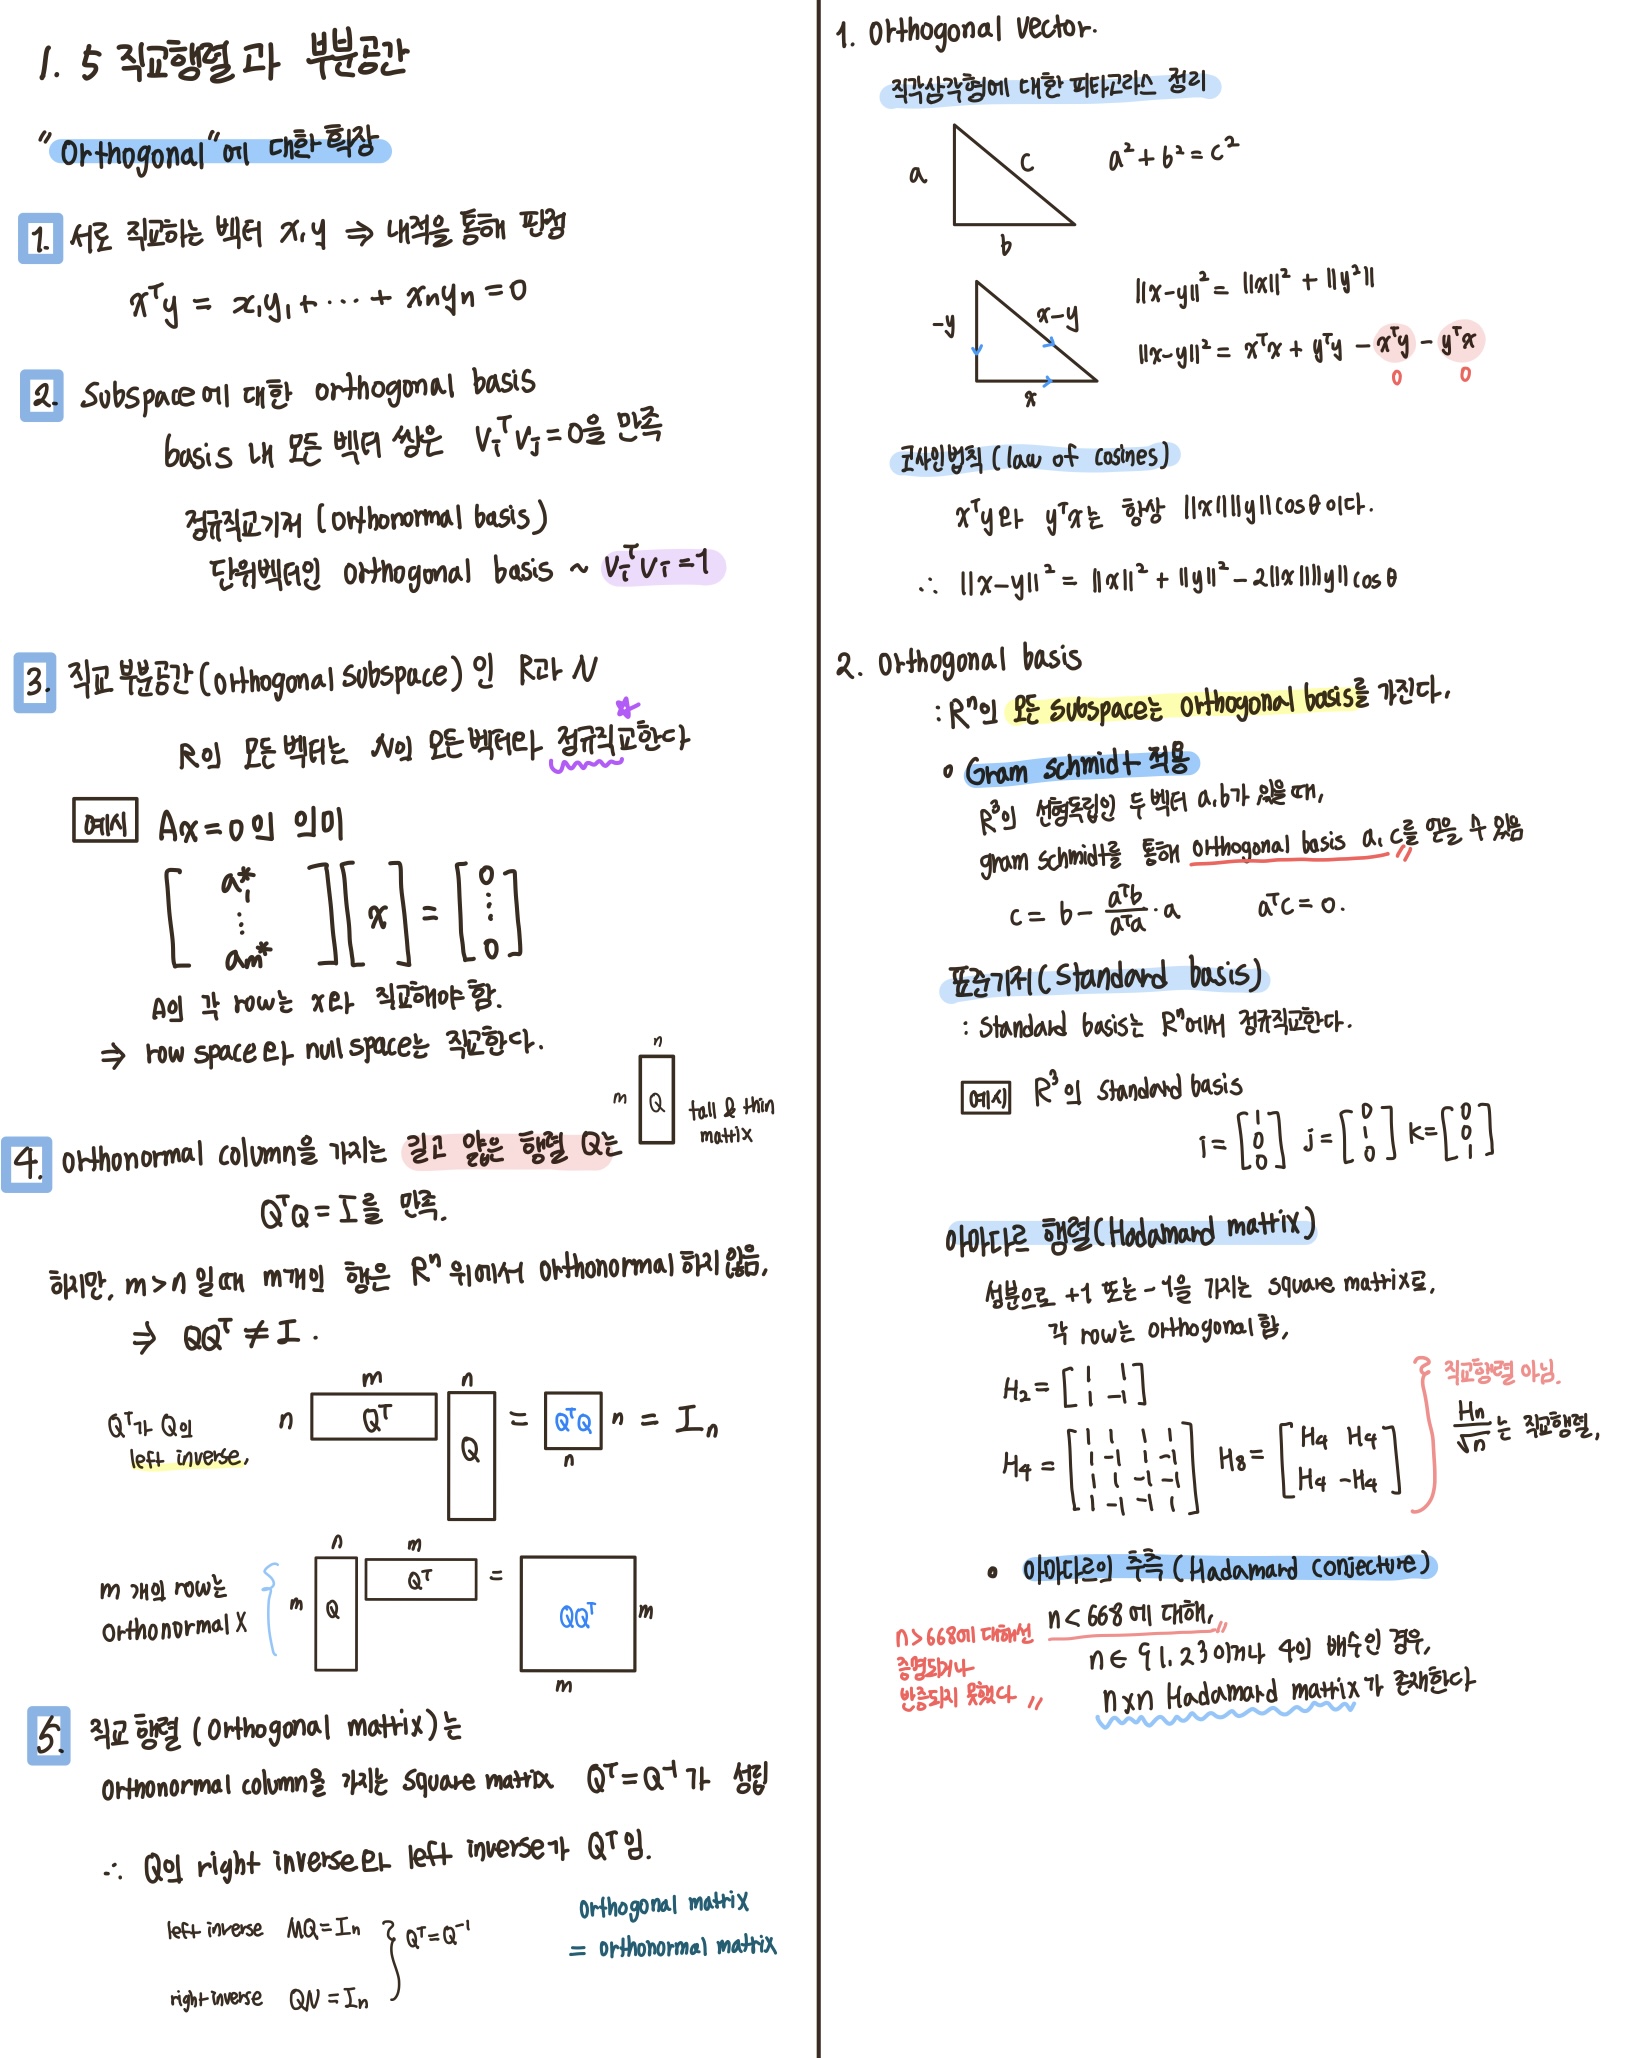 1. 5 직교행렬 과 부분공간
"Orthogonal"에 대한 확장
1. 서로 직교하는 벡터 x, y ⇒ 내적을 통해 판정
xᵀy = x₁y₁ + ⋯ + xₙyₙ = 0
2. Subspace에 대한 orthogonal basis
basis 내 모든 벡터 쌍은 vᵢᵀvⱼ = 0을 만족
정규직교기저 (orthonormal basis)
단위벡터인 orthogonal basis ~ vᵢᵀvᵢ = 1
3. 직교 부분공간 (orthogonal subspace) 인 R과 N
R의 모든 벡터는 N의 모든벡터와 정규직교한다
예시 Ax = 0 의 의미
[a₁* ⋮ aₘ*] [x] = [0 ⋮ 0]
A의 각 row는 x와 직교해야 함.
⇒ row space와 null space는 직교한다.
n
m Q tall & thin
matrix
4. orthonormal column을 가지는 길고 얇은 행렬 Q는
QᵀQ = I를 만족.
하지만, m > n 일때 m개의 행은 Rⁿ 위에서 orthonormal 하지 않음,
⇒ QQᵀ ≠ I .
m n
Qᵀ가 Q의 n Qᵀ Q = QᵀQ n = Iₙ
left inverse, n
n m
m 개의 row는 m Q Qᵀ = QQᵀ m
orthonormal X
m
5. 직교 행렬 (orthogonal matrix)는
orthonormal column을 가지는 square matrix Qᵀ = Q⁻¹ 가 성립
∴ Q의 right inverse와 left inverse가 Qᵀ임.
left inverse MQ = Iₙ
Qᵀ = Q⁻¹
right inverse QN = Iₙ
orthogonal matrix
= orthonormal matrix
1. Orthogonal vector.
직각삼각형에 대한 피타고라스 정리
a c a² + b² = c²
b
-y x-y ||x-y||² = ||x||² + ||y²||
||x-y||² = xᵀx + yᵀy - xᵀy - yᵀx
0 0
x
코사인법칙 (law of cosines)
xᵀy와 yᵀx는 항상 ||x|| ||y|| cos θ 이다.
∴ ||x-y||² = ||x||² + ||y||² - 2||x|| ||y|| cos θ
2. Orthogonal basis
: Rⁿ의 모든 subspace는 orthogonal basis를 가진다,
o Gram schmidt 적용
R³의 선형독립인 두 벡터 a, b가 있을 때,
gram schmidt를 통해 orthogonal basis a, c를 얻을 수 있음
c = b - aᵀb/aᵀa · a aᵀc = 0.
표준기저 (Standard basis)
: Standard basis는 Rⁿ에서 정규직교한다.
예시 R³의 Standard basis
i = [1 0 0] j = [0 1 0] k = [0 0 1]
아마다르 행렬 (Hadamard matrix)
성분으로 +1 또는 -1을 가지는 square matrix로,
각 row는 orthogonal 함,
H₂ = [1 1 1 -1]
직교행렬 아님.
Hn/√n 는 직교행렬,
H₄ = [1 1 1 1 1 -1 1 -1 1 1 -1 -1 1 -1 -1 1] H₈ = [H₄ H₄ H₄ -H₄]
o 아마다르의 추측 (Hadamard conjecture)
n < 668 에 대해,
n > 668에 대해선
증명되거나
반증되지 못했다
n ∈ 9 1, 2 3 이거나 4의 배수인 경우,
n×n Hadamard matrix가 존재한다